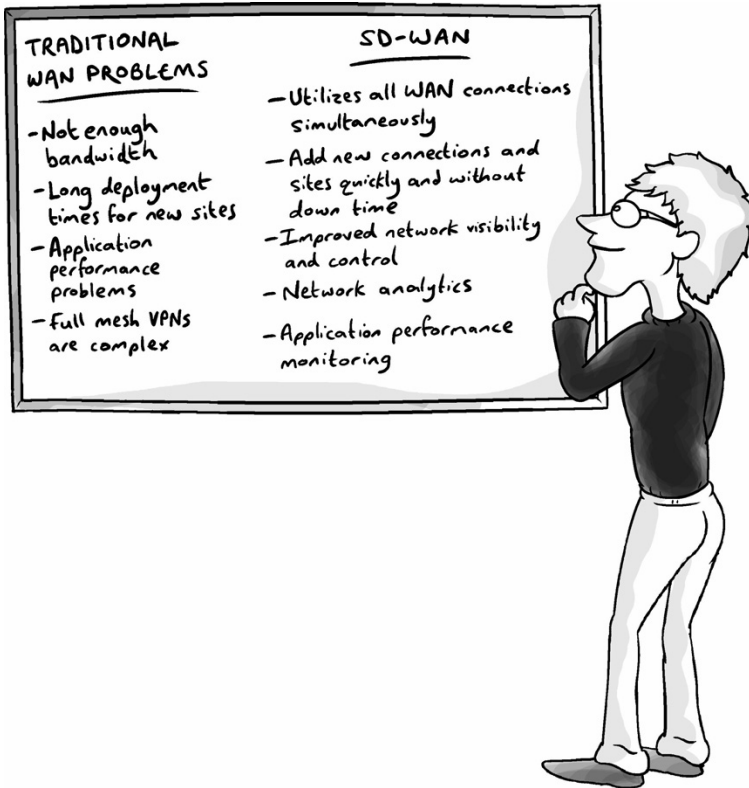 TRADITIONAL
WAN PROBLEMS
- Not enough
bandwidth
- Long deployment
times for new sites
- Application
performance
problems
- Full mesh VPNs
are complex
SD-WAN
- Utilizes all WAN connections
simultaneously
- Add new connections and
sites quickly and without
down time
- Improved network visibility
and control
- Network analytics
- Application performance
monitoring